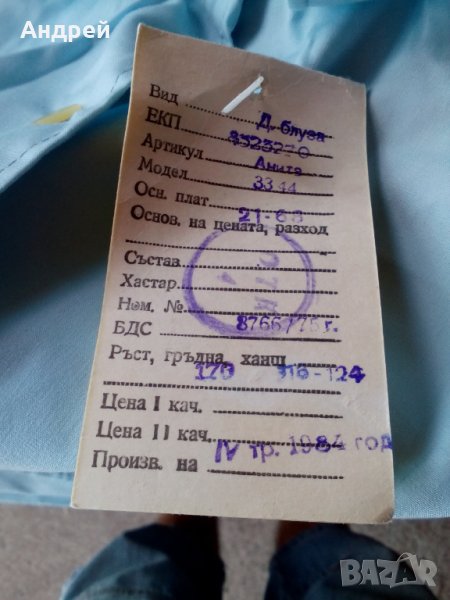 Андрей
Вид Д. блуза
ЕКП 8523270
Артикул Анита
Модел 3344
Осн. плат
Основ. на цената, разход 21-68
Състав
Хастар
Ном. №
БДС 8766/75 г.
Ръст, гръдна, ханш
170 116-124
Цена I кач.
Цена II кач.
Произв. на IV тр. 1984 год
BAZAR